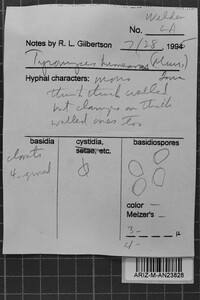 Welden
No. LA
Notes by R. L. Gilbertson 7/28 1994
Tyromyces (Murr.)
Hyphal characters: mono
thin & thick walled
but clamps on thick
walled ones too
basidia
cystidia,
setae, etc.
basidiospores
clavate
4-spored
color –
Melzer's –
3– µ
ARIZ-M-AN23828